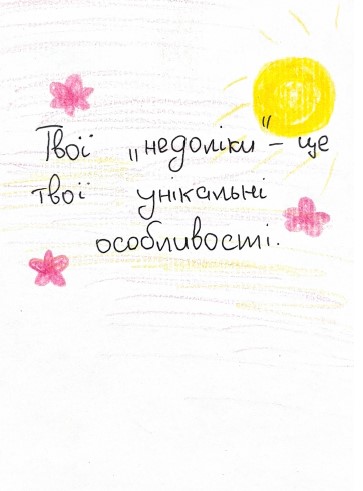 Твої „недоліки" – це
твої унікальні
особливості.